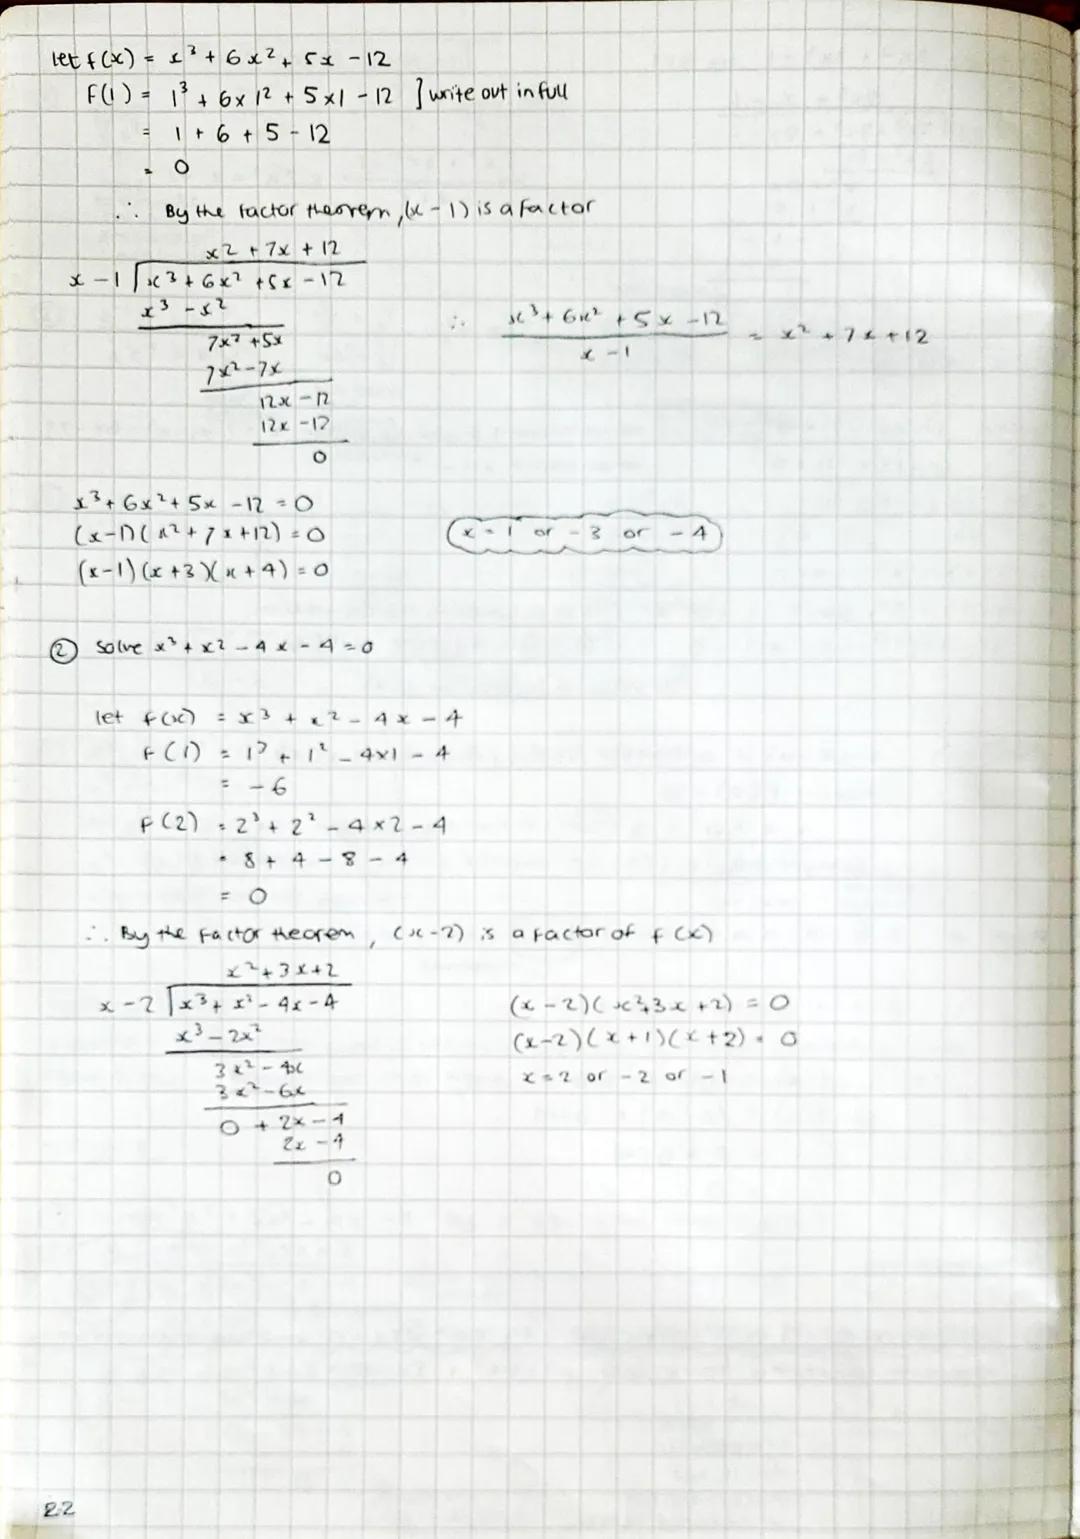 let f(x) = x³ + 6x² + 5x - 12
f(1) = 1³ + 6 x 1² + 5 x 1 - 12 ] write out in full
= 1 + 6 + 5 - 12
= 0
∴ By the factor theorem, (x - 1) is a factor
x2 + 7x + 12
x - 1 x³ + 6x² + 5x - 12
x³ - x²
7x² + 5x
7x² - 7x
12x - 12
12x - 12
0
∴ x³ + 6x² + 5x - 12 / x - 1 = x² + 7x + 12
x³ + 6x² + 5x - 12 = 0
(x-1)(x² + 7x + 12) = 0
(x-1)(x+3)(x+4) = 0
x = 1 or -3 or -4
② Solve x³ + x² - 4x - 4 = 0
let f(x) = x³ + x² - 4x - 4
f(1) = 1³ + 1² - 4x1 - 4
= -6
f(2) = 2³ + 2² - 4 x 2 - 4
= 8 + 4 - 8 - 4
= 0
∴ By the factor theorem, (x-2) is a factor of f(x)
x² + 3x + 2
x - 2 x³ + x² - 4x - 4
x³ - 2x²
3x² - 4x
3x² - 6x
0 + 2x - 4
2x - 4
0
(x-2)(x²+3x+2) = 0
(x-2)(x+1)(x+2) = 0
x = 2 or -2 or -1
22